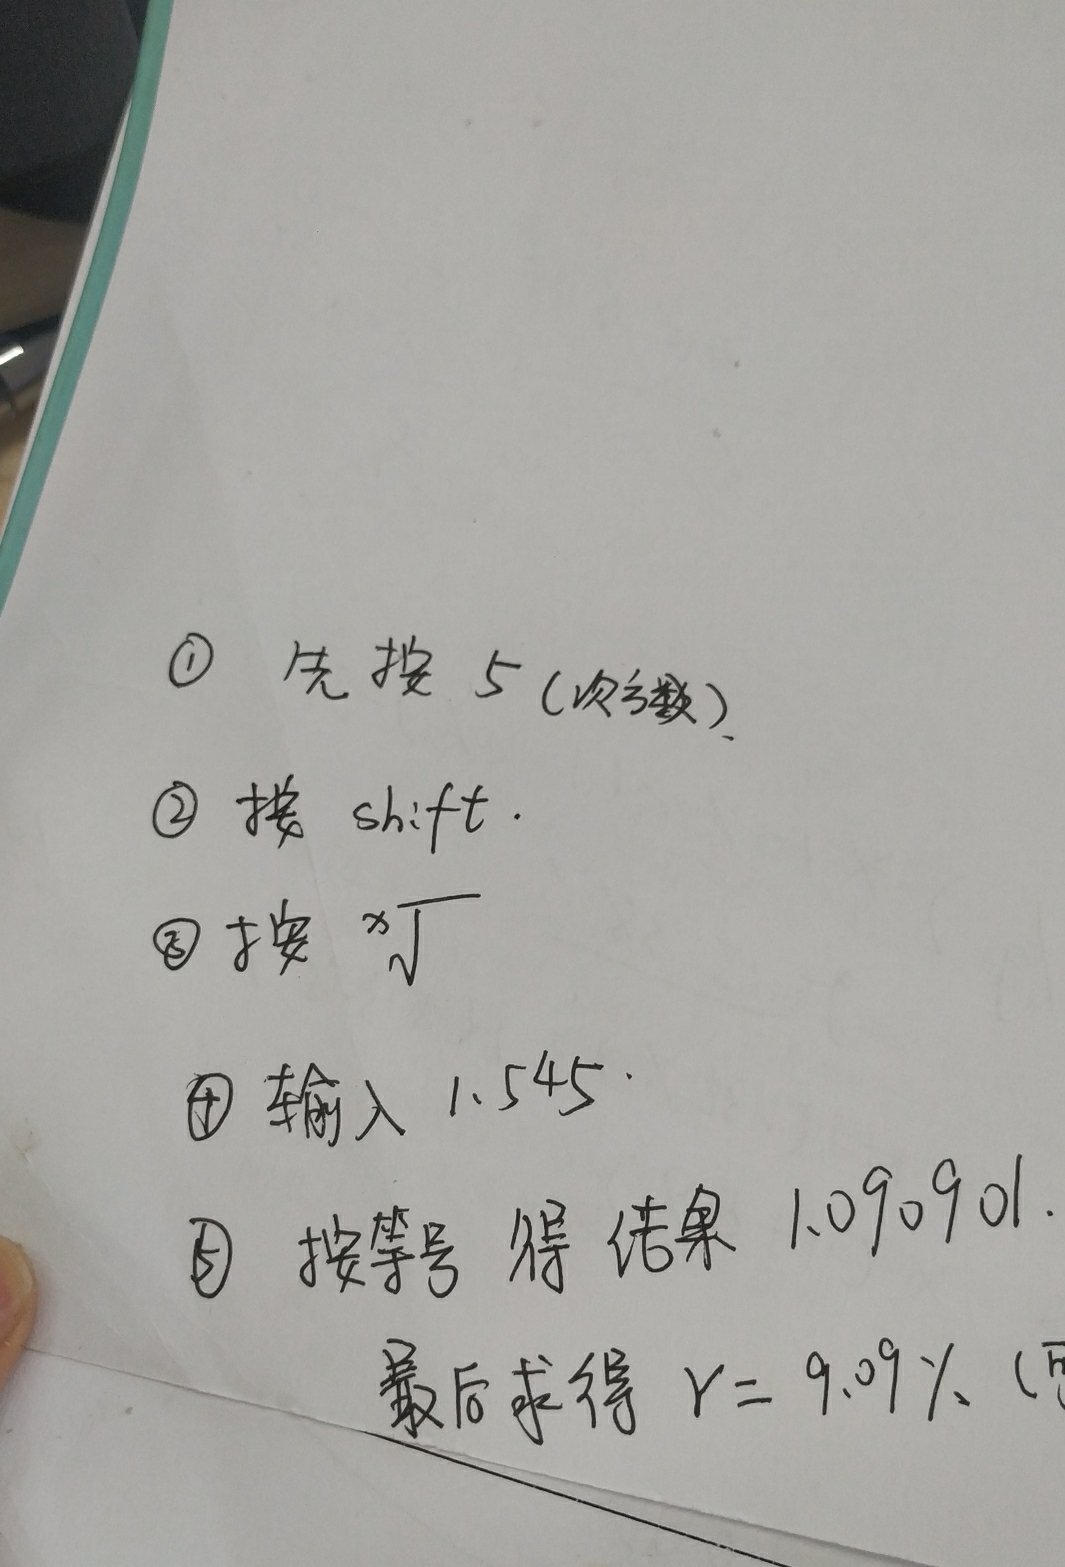 ① 先按 5 (次方数).
② 按 shift.
③ 按 ˣ√
④ 输入 1.545.
⑤ 按等号 得 结果 1.090901.
最后求得 r = 9.09% (